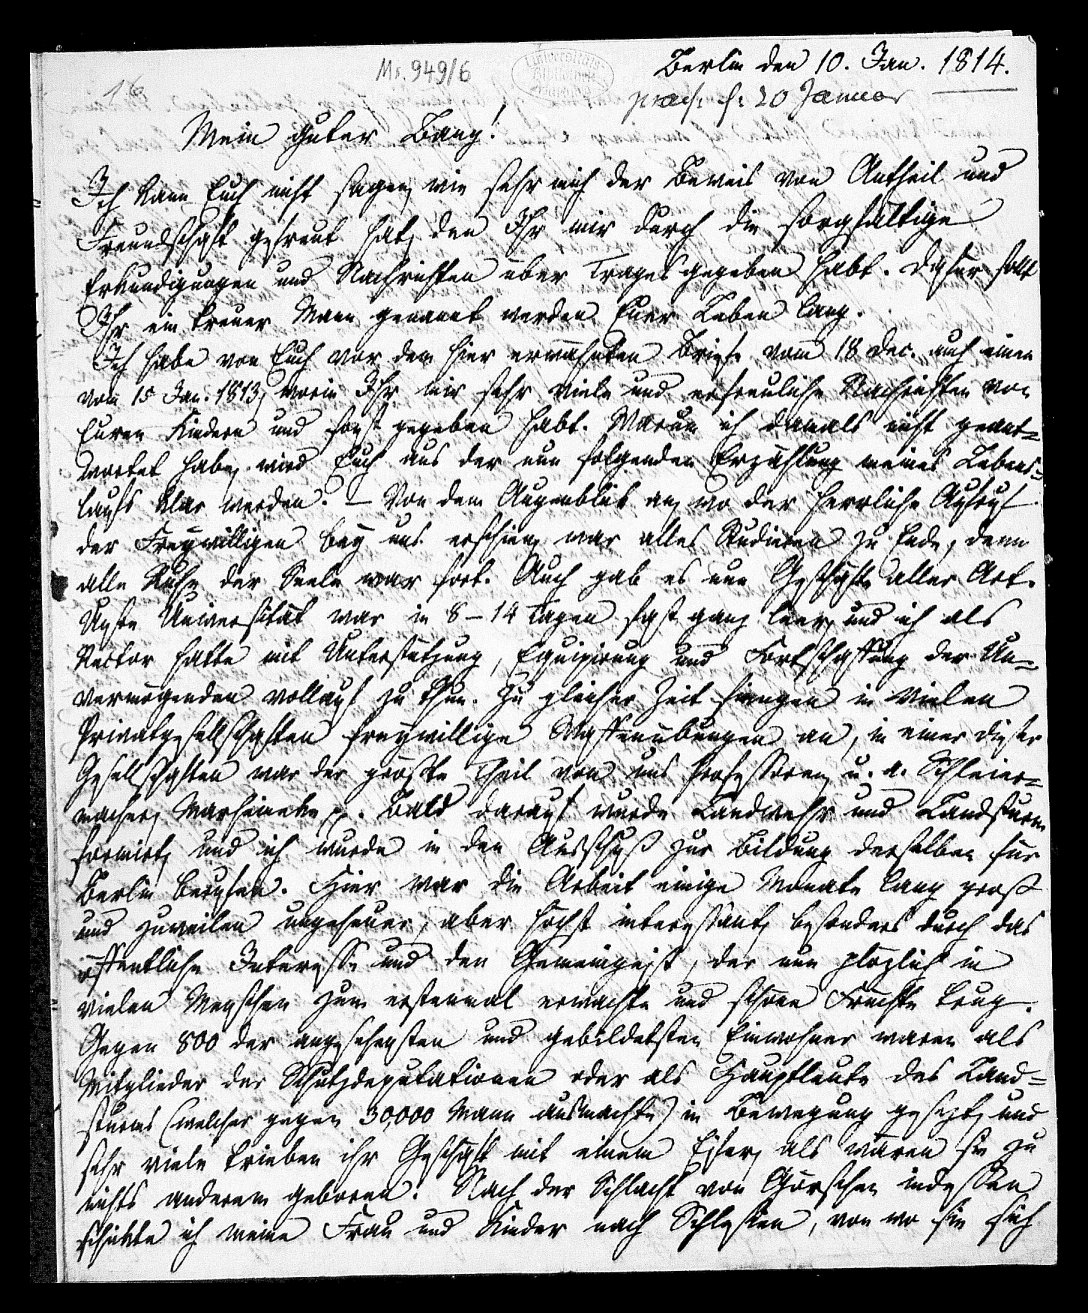 16
Ms. 949/6
Universitäts
Bibliothek
Berlin den 10. Jan. 1814.
20 Januar
Mein guter Bang!
Ich kann Euch nicht sagen, wie sehr mich der Beweis von Antheil und
Freundschaft gefreut hat, den Ihr mir durch die sorgfaltige
Erkundigungen und Nachrichten uber Trages gegeben habt. Dafur sollt
Ihr ein treuer Mann genannt werden Euer Leben lang.
Ich habe von Euch vor dem hier erwahnten Briefe vom 18 Dec. auch einen
vom 15 Jan. 1813, worin Ihr mir sehr viele und erfreuliche Nachrichten von
Euren Kindern und sonst gegeben habt. Warum ich damals nicht geant=
wortet habe, wird Euch aus der nun folgenden Erzählung meines Lebens=
laufs klar werden. – Von dem Augenblick an, wo der herrliche Aufruf
der Freywilligen bey uns erschien, war alles Studieren zu Ende, denn
alle Ruhe der Seele war fort. Auch gab es nun Geschäfte aller Art.
Unsre Universität war in 8–14 Tagen fast ganz leer, und ich als
Rector hatte mit Unterstutzung, Equipirung und Fortschaffung der Un=
vermogenden vollauf zu thun. Zu gleicher Zeit fiengen in vielen
Privatgesellschaften freywillige Waffenubungen an, in einer dieser
Gesellschaften war der große Theil von uns Professoren, u. a. Schleier=
macher, Marheineke pp. Bald darauf wurde Landwehr und Landsturm
formirt, und ich wurde in den Ausschuß zur Bildung derselben fur
Berlin berufen. Hier war die Arbeit einige Monate lang groß
und zuweilen ungeheuer, aber hochst interessant, besonders durch das
offentliche Interesse und den Gemeingeist, der nun plozlich in
vielen Menschen zum erstenmal erwachte und schone Fruchte trug.
Gegen 800 der angesehensten und gebildetsten Einwohner waren als
Mitglieder der Schutzdeputationen oder als Hauptleute des Land=
sturms (welcher gegen 30,000 Mann ausmachte) in Bewegung gesezt, und
sehr viele trieben ihr Geschaft mit einem Eifer, als waren sie zu
nichts anderem geboren. Nach der Schlacht von Gorschen indessen
schickte ich meine Frau und Kinder nach Schlesien, von wo sie sich